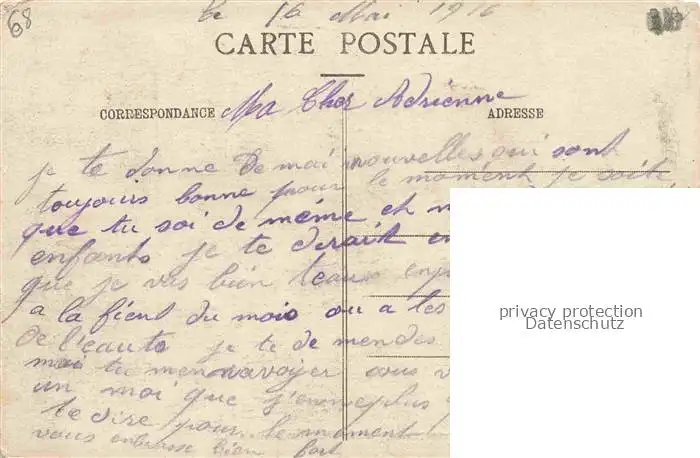 68
le 16 Mai 1916
CARTE POSTALE
CORRESPONDANCE
ADRESSE
Ma Cher Adrienne
je te donne de mai nouvelles qui sont
toujours bonne pour le moment je soite
que tu soi de même et
enfants je te dirait en
que je vas bien
a la fient du mois ou a les
de l'eauto je te demendes
moi tu men navoyer sous
un moi que j'enneplus
te dire pour le moment
vous enbrasse bien fort
privacy protection
Datenschutz